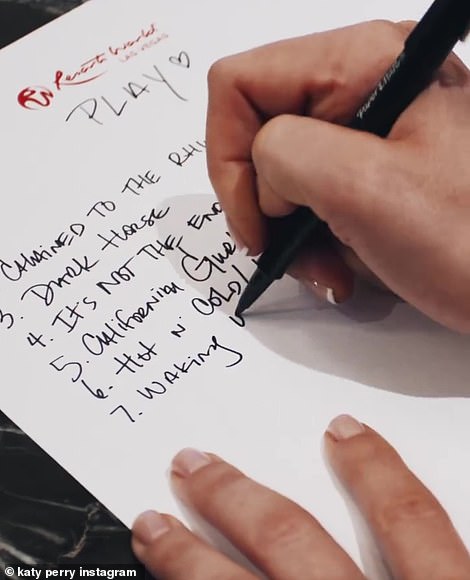 Resorts World
LAS VEGAS
PLAY ♡
CHAINED TO THE RH
3. DARK HORSE
4. IT'S NOT THE END
5. CALIFORNIA GUR
6. HOT N COLD/
7. WAKING U
© katy perry instagram